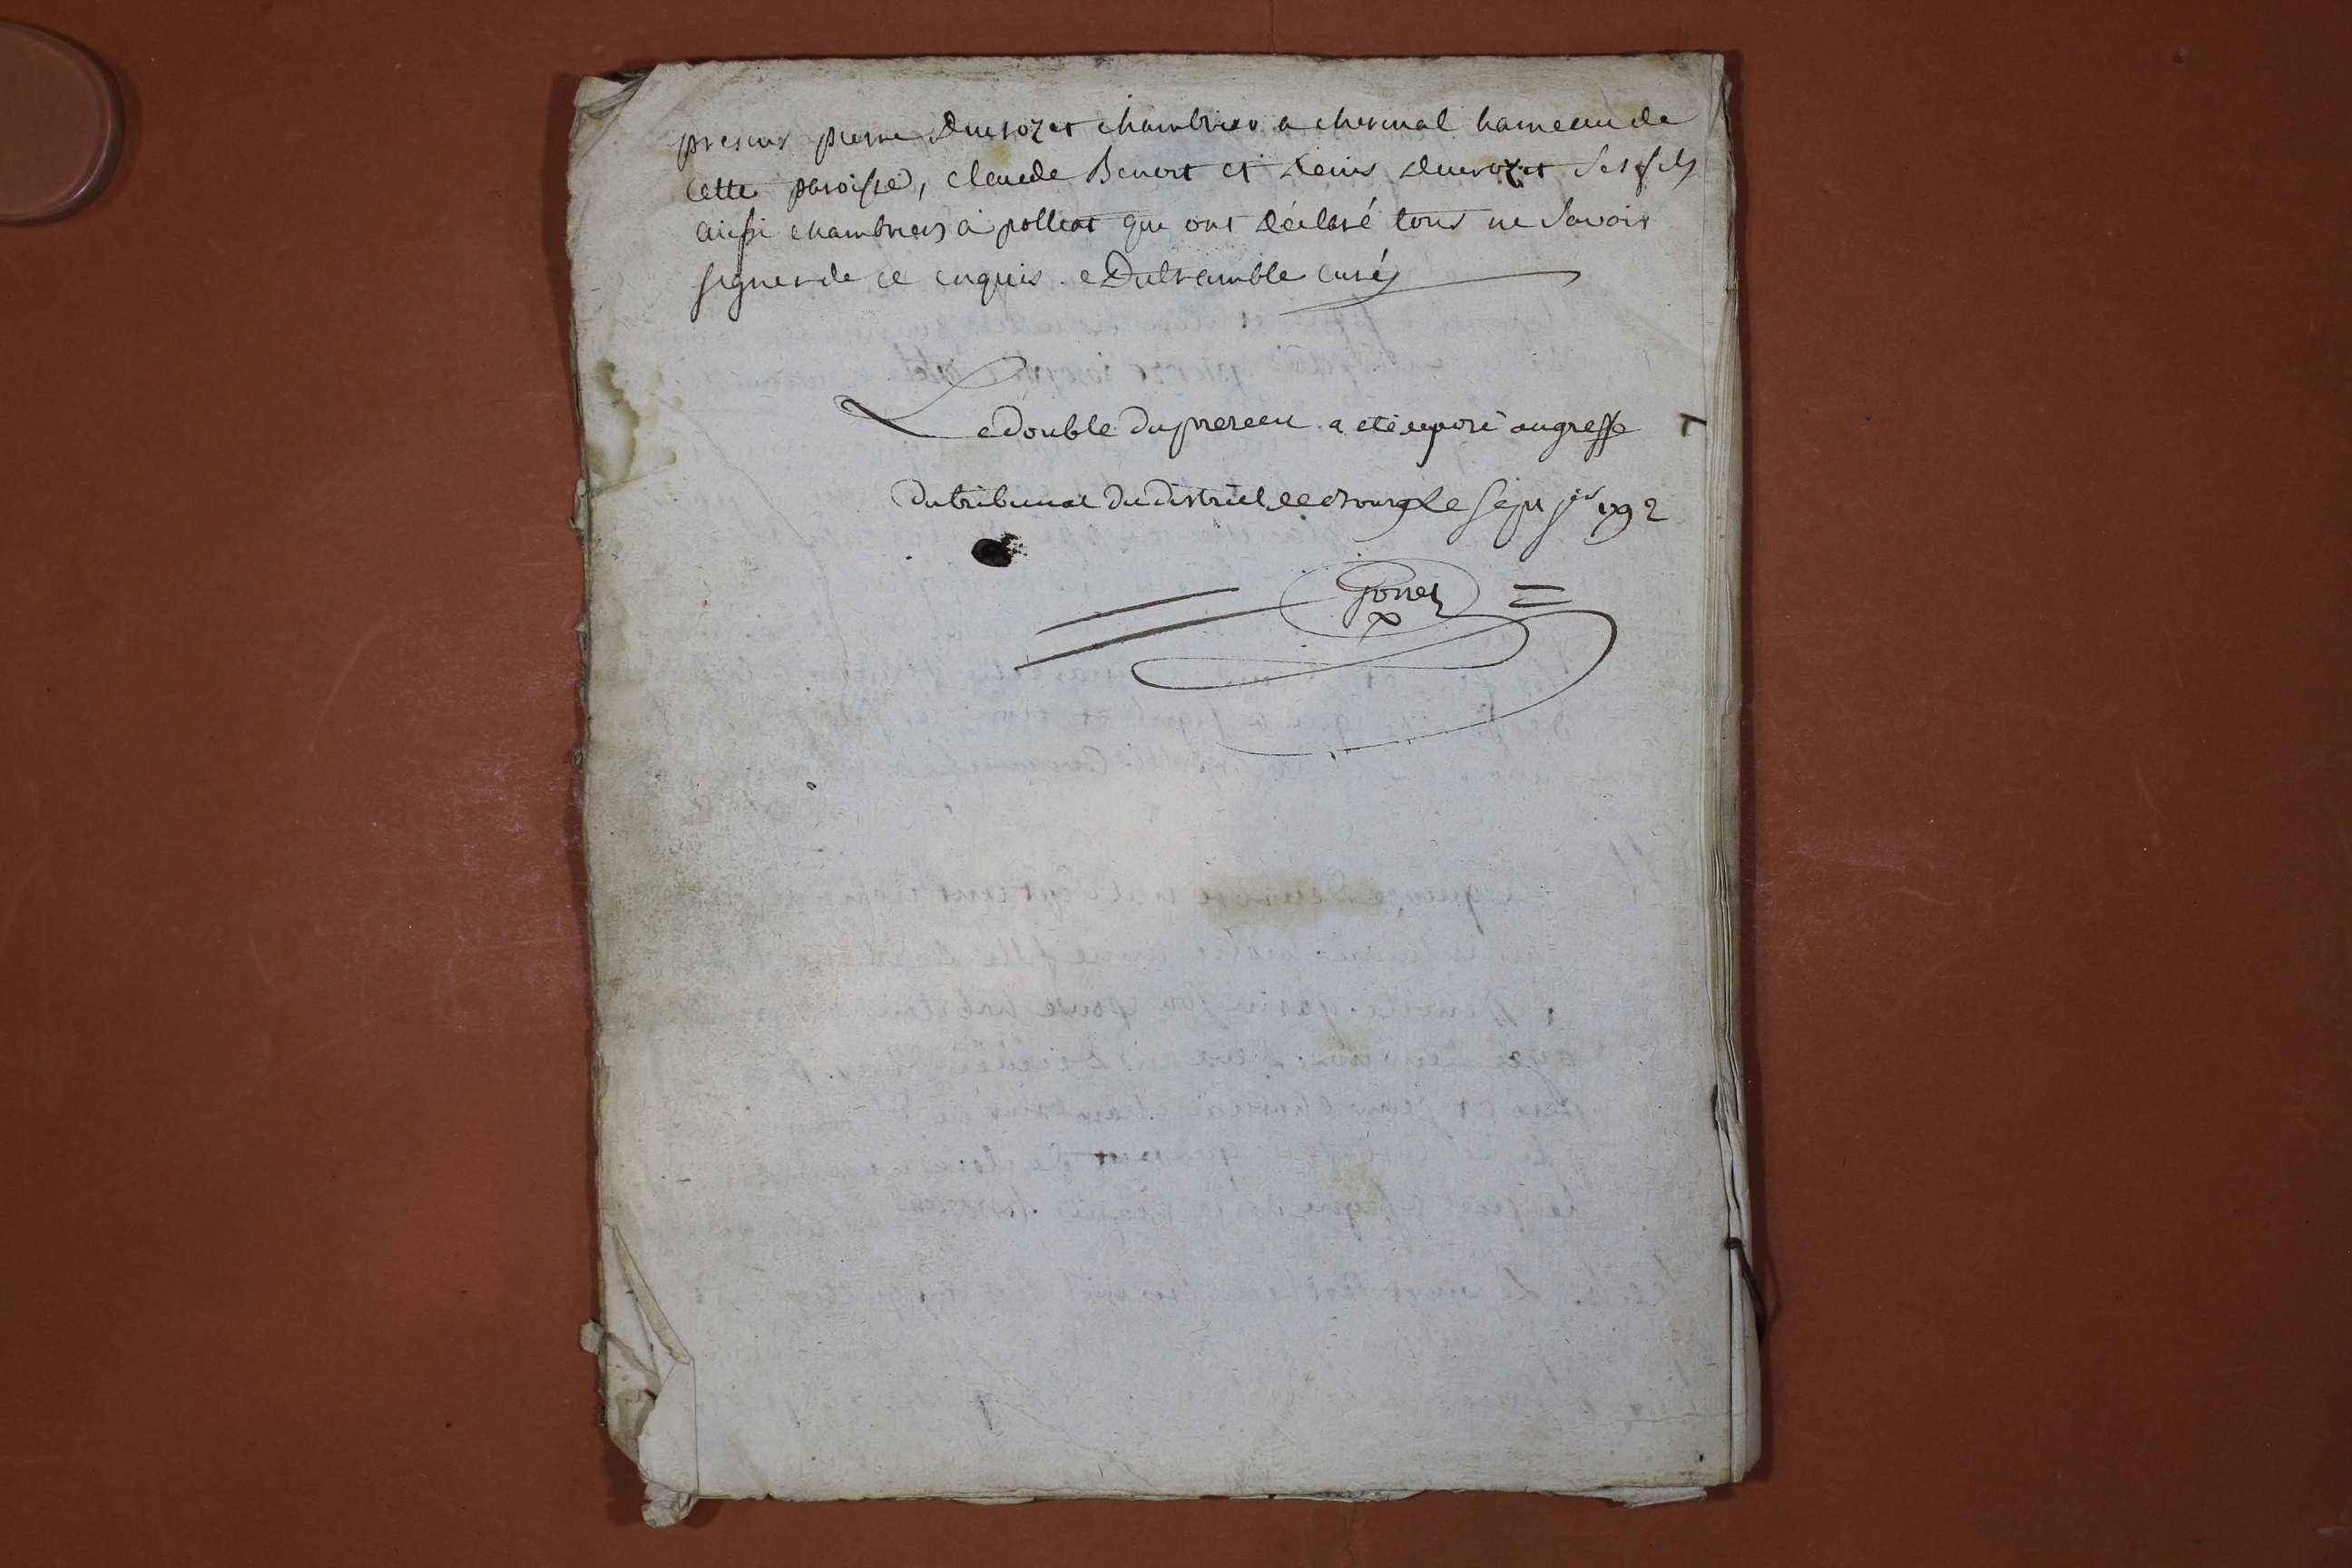 presens pierre Ducrozet chambrier a chermal hameau de
cette paroisse, claude Benoit et denis ducrozet ses fils
aussi chambriers à polliat qui ont déclaré tous ne savoir
signer de ce enquis. Dultramble curé
Le double du present a eté deposé au greffe
du tribunal du district de bourg le sept jer 1792
Gonet